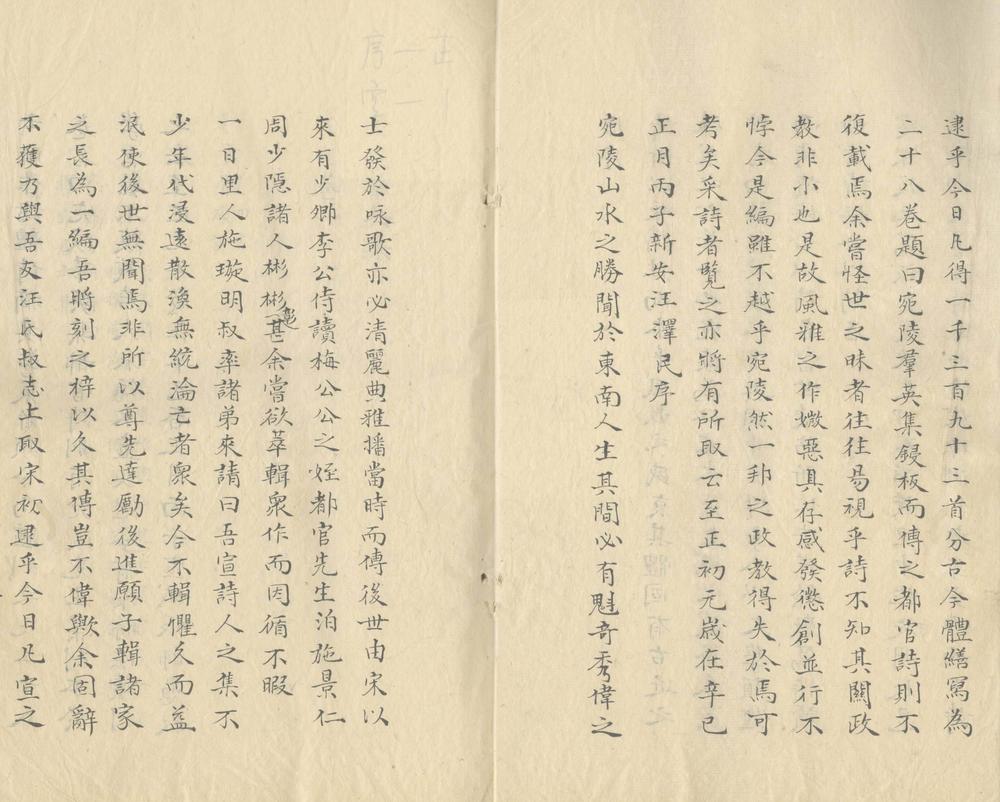 逮乎今日凡得一千三百九十三首分古今體繕寫為
二十八卷題曰宛陵羣英集鋟板而傳之都官詩則不
復載焉余嘗怪世之昧者往往易視乎詩不知其關政
教非小也是故風雅之作媺惡具存感發懲創並行不
悖今是編雖不越乎宛陵然一邦之政教得失於焉可
考矣采詩者覽之亦將有所取云至正初元嵗在辛巳
正月丙子新安汪澤民序
宛陵山水之勝聞於東南人生其間必有魁竒秀偉之
士發於咏歌亦必清麗典雅播當時而傳後世由宋以
來有少卿李公侍讀梅公公之姪都官先生洎施景仁
周少隱諸人彬彬甚余嘗欲萃輯衆作而因循不暇
一日里人施璇明叔率諸弟來請曰吾宣詩人之集不
少年代浸遠散渙無統淪亡者衆矣今不輯懼久而益
泯使後世無聞焉非所以尊先達勵後進願子輯諸家
之長為一編吾將刻之梓以久其傳豈不偉歟余固辭
不獲乃與吾友汪氏叔志上取宋初逮乎今日凡宣之